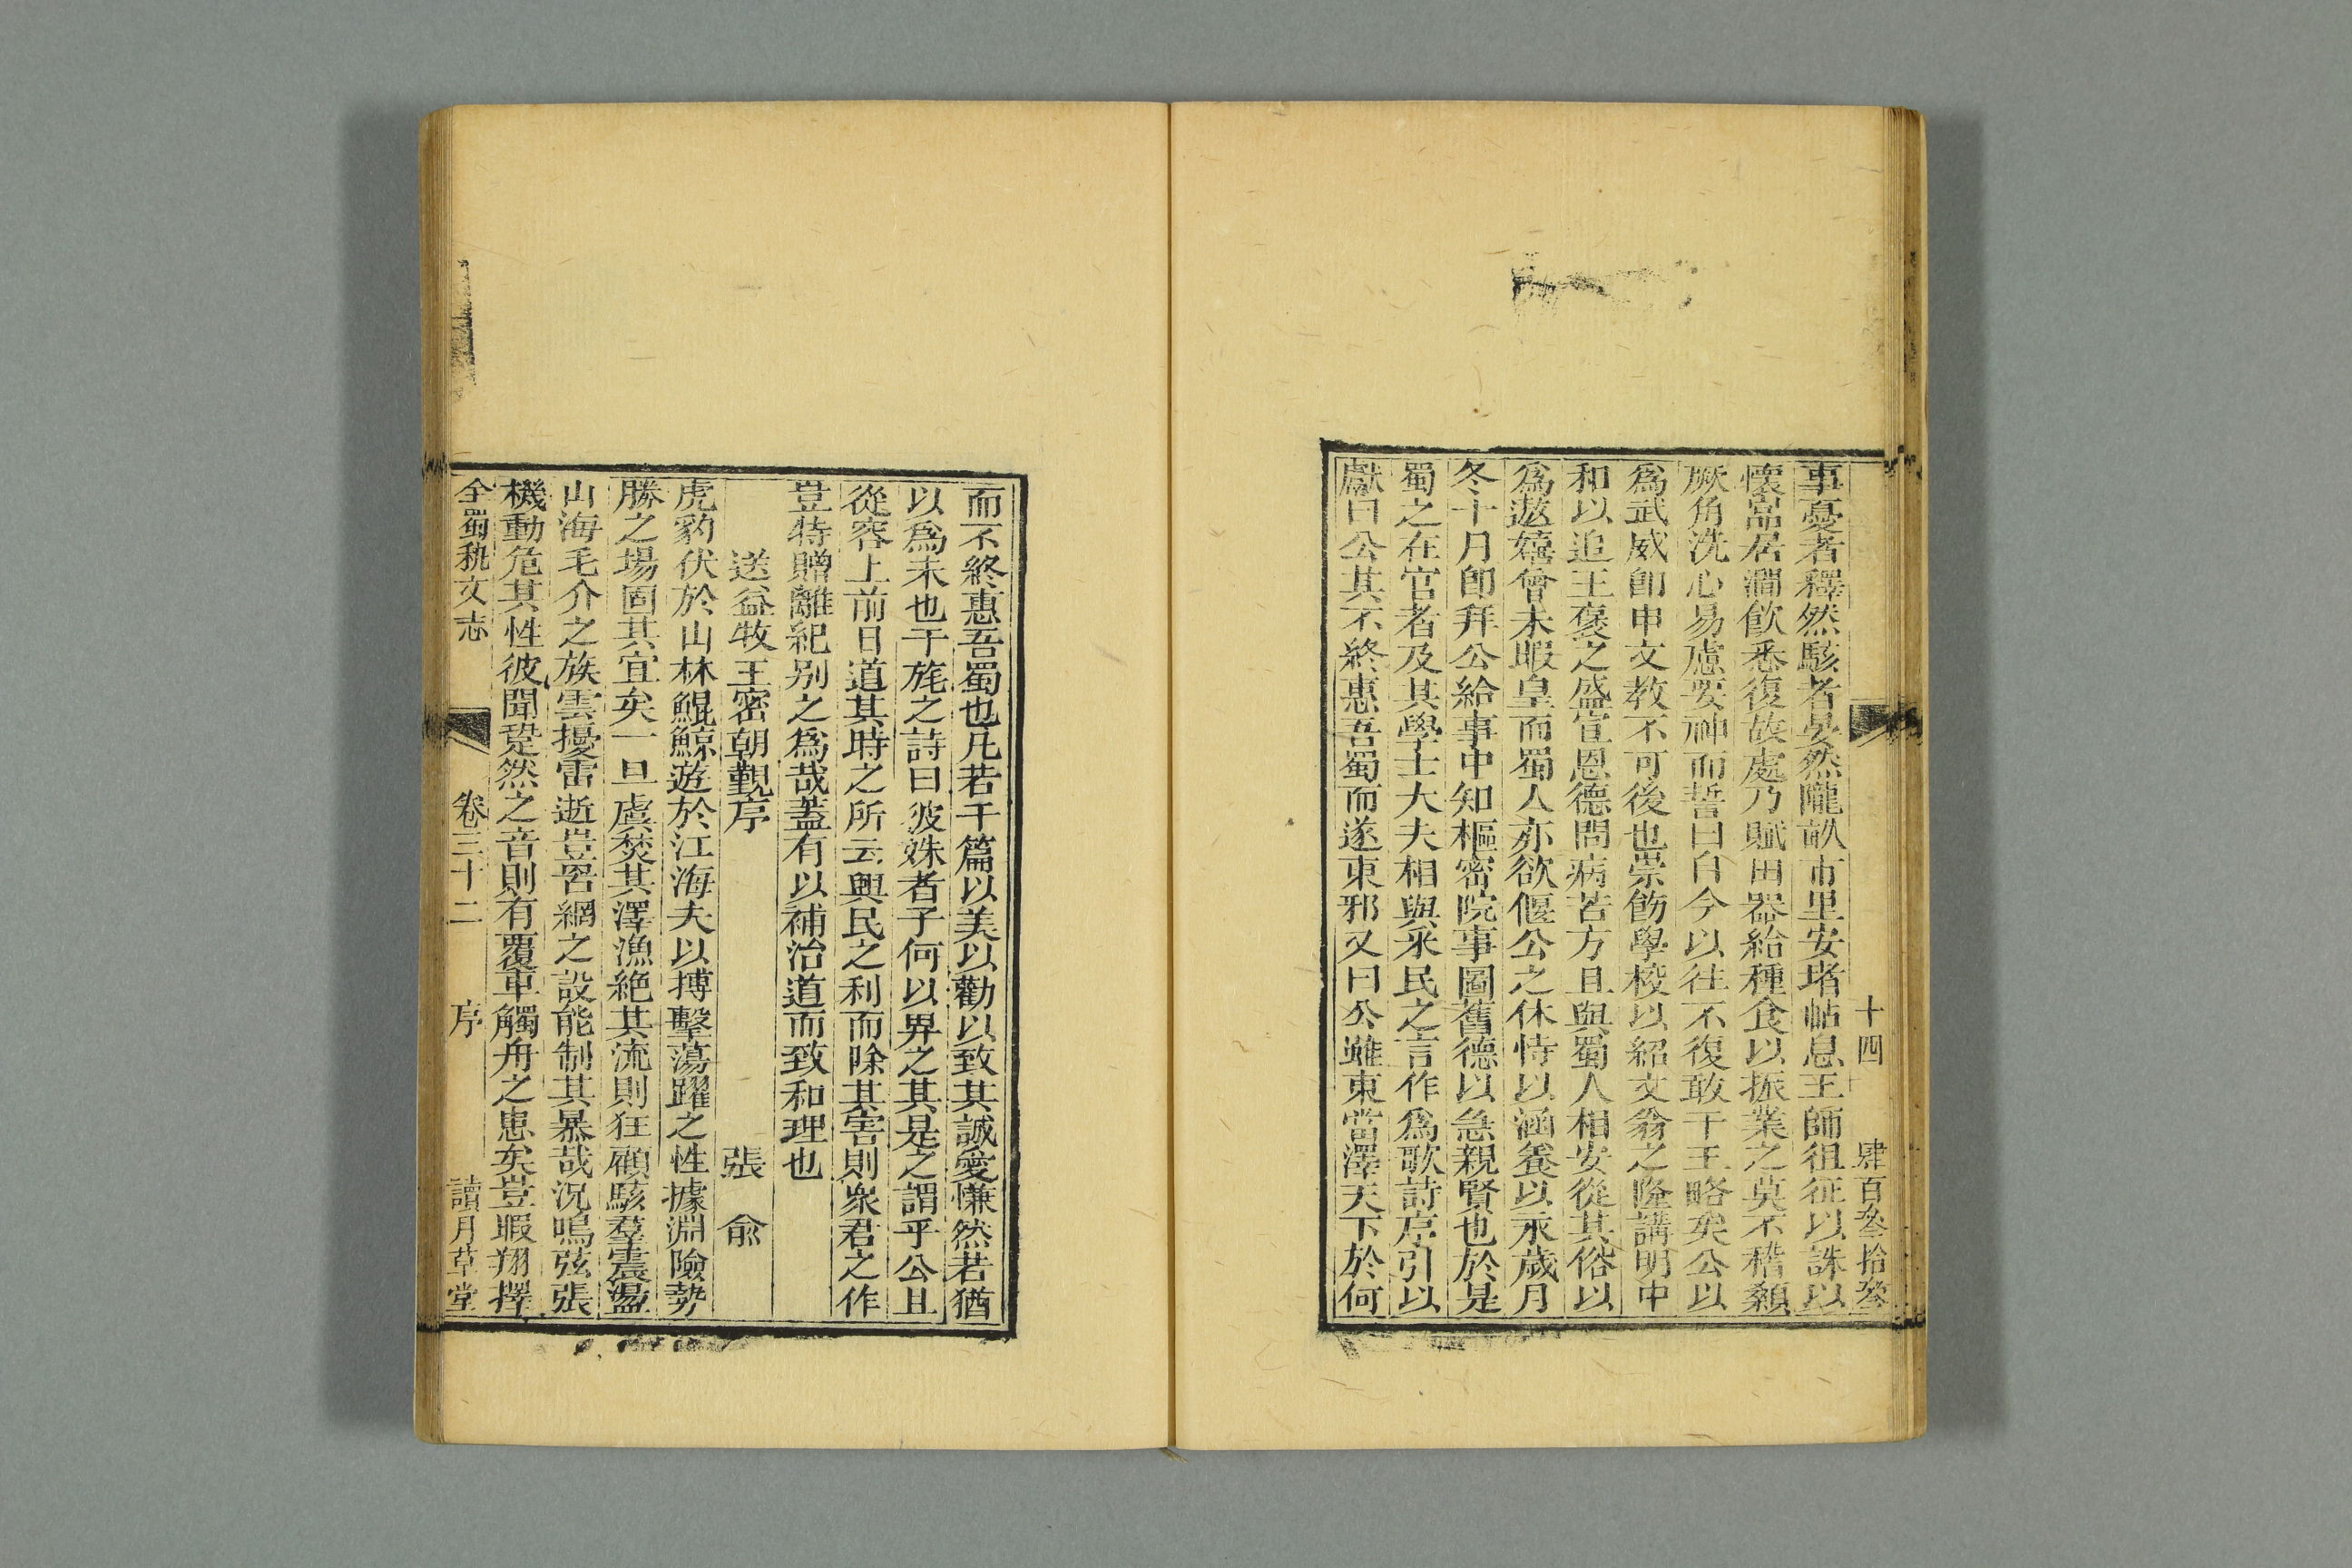 十四 肆百叁拾叁
事憂者釋然駭者晏然隴畝市里安堵帖息王師徂征以誅以
懷嵓居澗飲悉復故處乃賦田器給種食以振業之莫不稽顙
厥角洗心易慮要神而誓曰自今以往不復敢干王略矣公以
爲武威卽申文教不可後也崇飭學校以紹文翁之隆講明中
和以追王褒之盛宣恩德問病苦方且與蜀人相安從其俗以
爲遨嬉曾未暇皇而蜀人亦欲偃公之休恃以涵養以永歲月
冬十月卽拜公給事中知樞密院事圖舊德以急親賢也於是
蜀之在官者及其學士大夫相與采民之言作爲歌詩序引以
獻曰公其不終惠吾蜀而遂東邪又曰公雖東當澤天下於何
而不終惠吾蜀也凡若干篇以美以勸以致其誠愛慊然若猶
以爲未也干旄之詩曰彼姝者子何以畀之其是之謂乎公且
從容上前日道其時之所云興民之利而除其害則衆君之作
豈特贈離紀别之爲哉蓋有以補治道而致和理也
送益牧王密朝覲序 張俞
虎豹伏於山林鯤鯨遊於江海夫以搏擊蕩躍之性據淵險勢
勝之場固其宜矣一旦虞焚其澤漁絶其流則狂顧駭羣震盪
山海毛介之族雲擾雷逝豈罟網之設能制其暴哉況鳴弦張
機動危其性彼聞跫然之音則有覆車觸舟之患矣豈暇翔擇
全蜀秇文志 卷三十二 序 讀月草堂